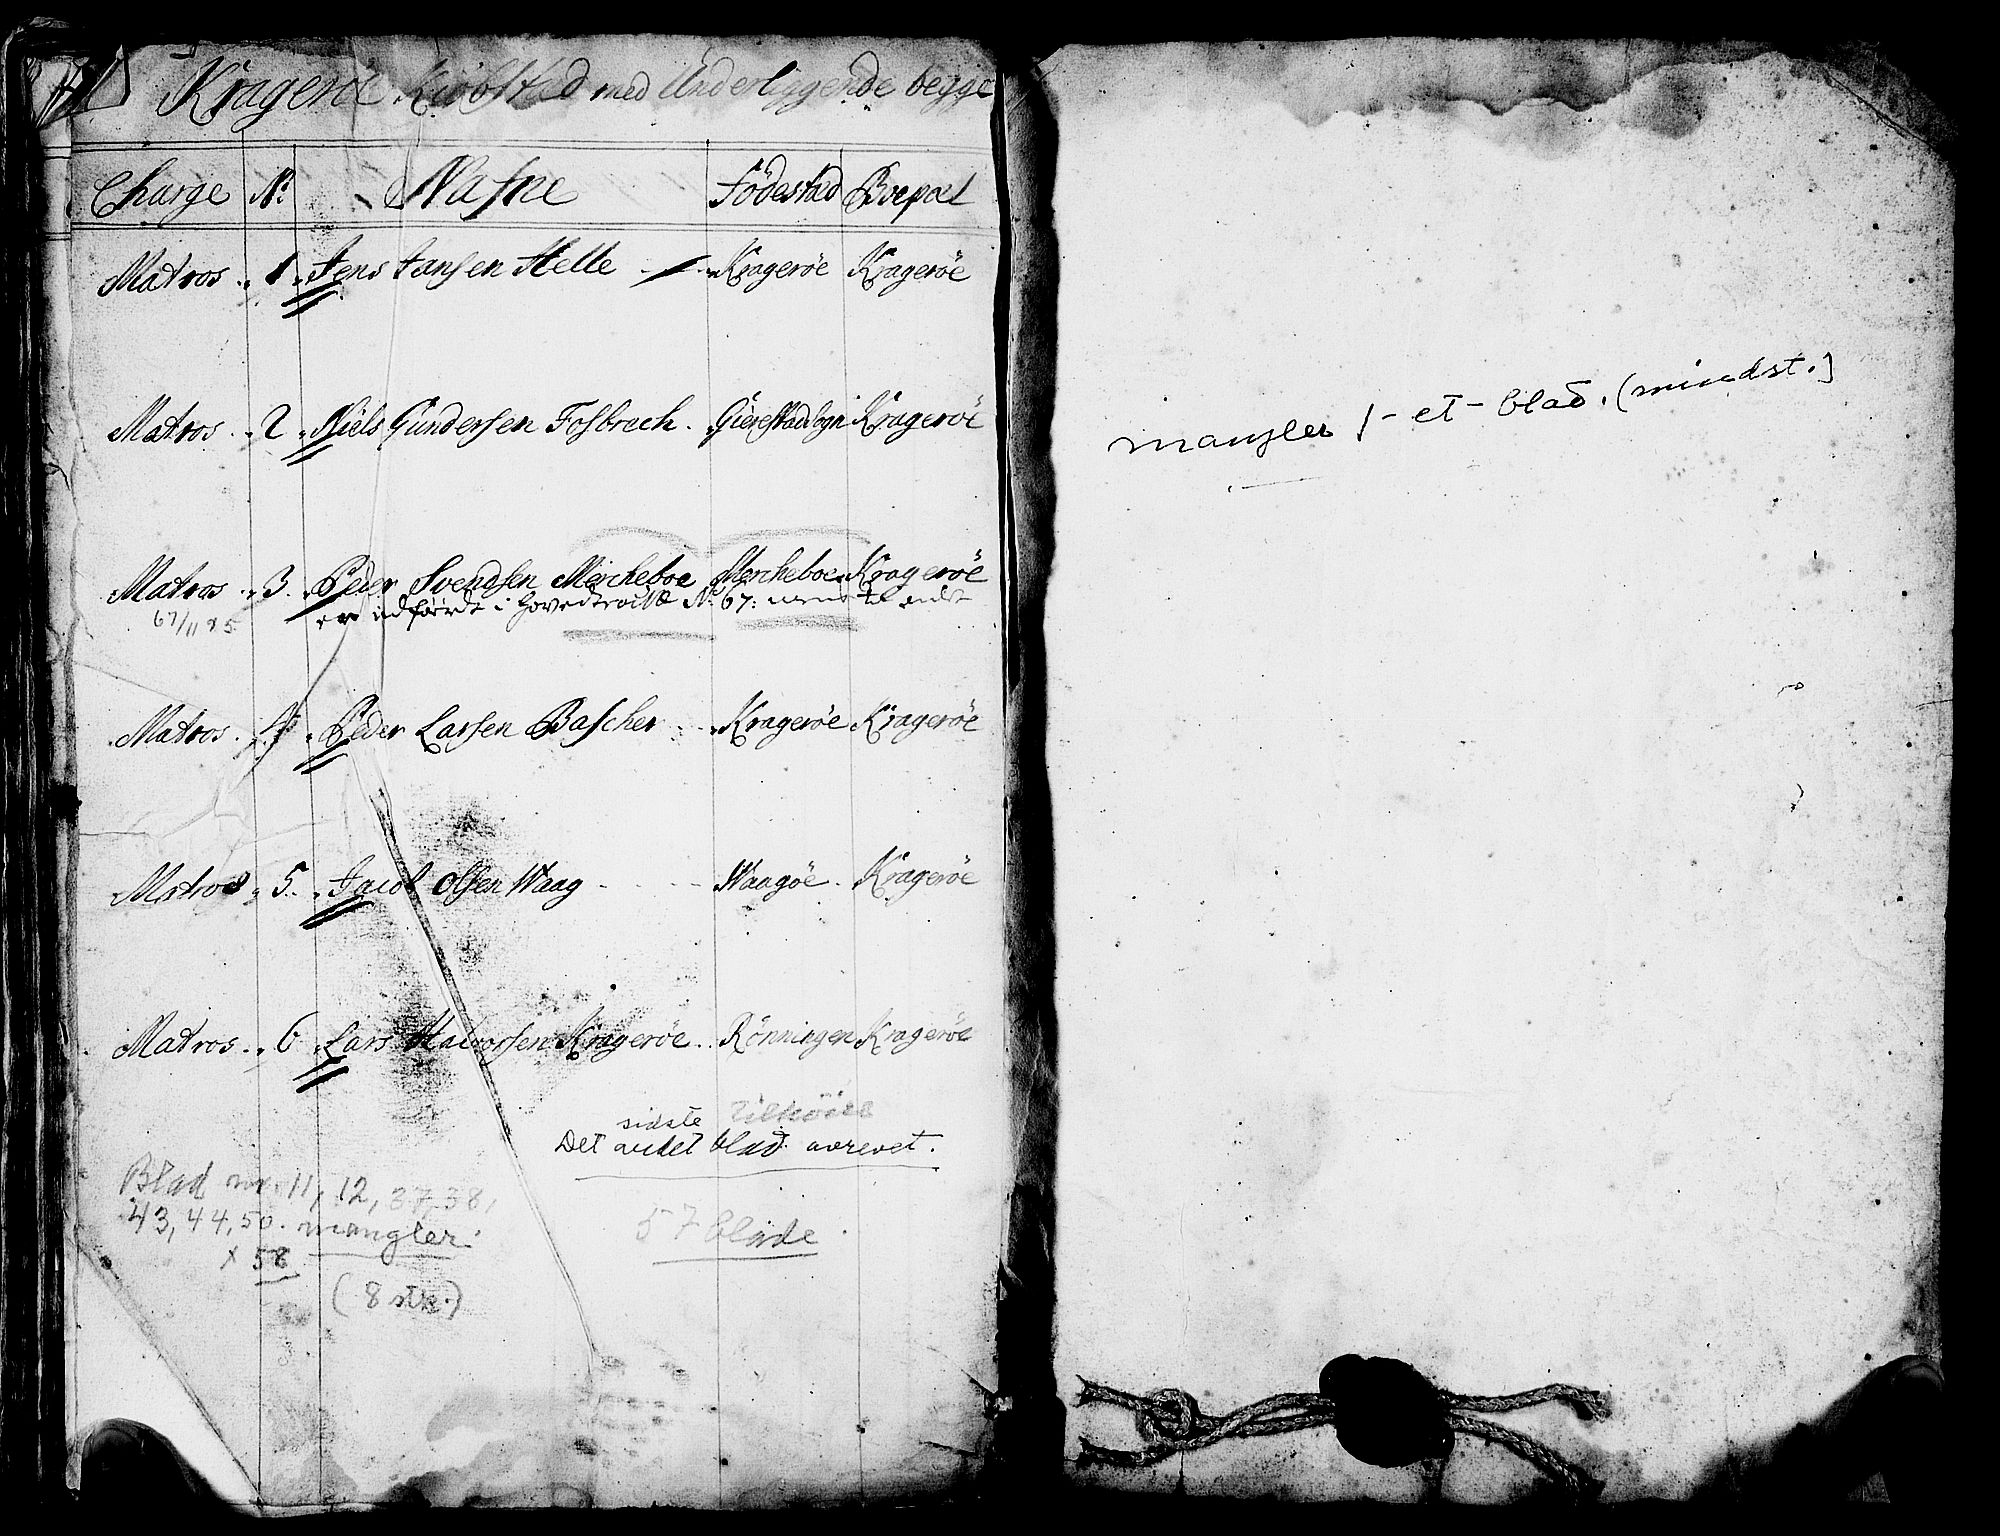 Kragerøe Kiøbstad med Underliggende begge
Charge No Nafne Fødestad Boepæl
Matros 1 Jens Jansen Helle Kragerøe Kragerøe
Matros 2 Niels Gundersen Fosbrech Gierestad Sogn Kragerøe
Matros 3 Peder Svendsen Mercheboe Mercheboe Kragerøe
er udførdt i hovedrolle No 67:
67/11 85
Matros 4 Peder Larsen Bascher Kragerøe Kragerøe
Matros 5 Jacob Olsen Waag Waagøe Kragerøe
Matros 6 Lars Halvorsen Kragerøe Rønningen Kragerøe
sidste
Det andet blad avrevet.
Blad nr. 11, 12, 37, 38,
43, 44, 50. mangler.
x 58
(8 stk.)
57 blade.
mangler 1 - et - blad. (mindst.)